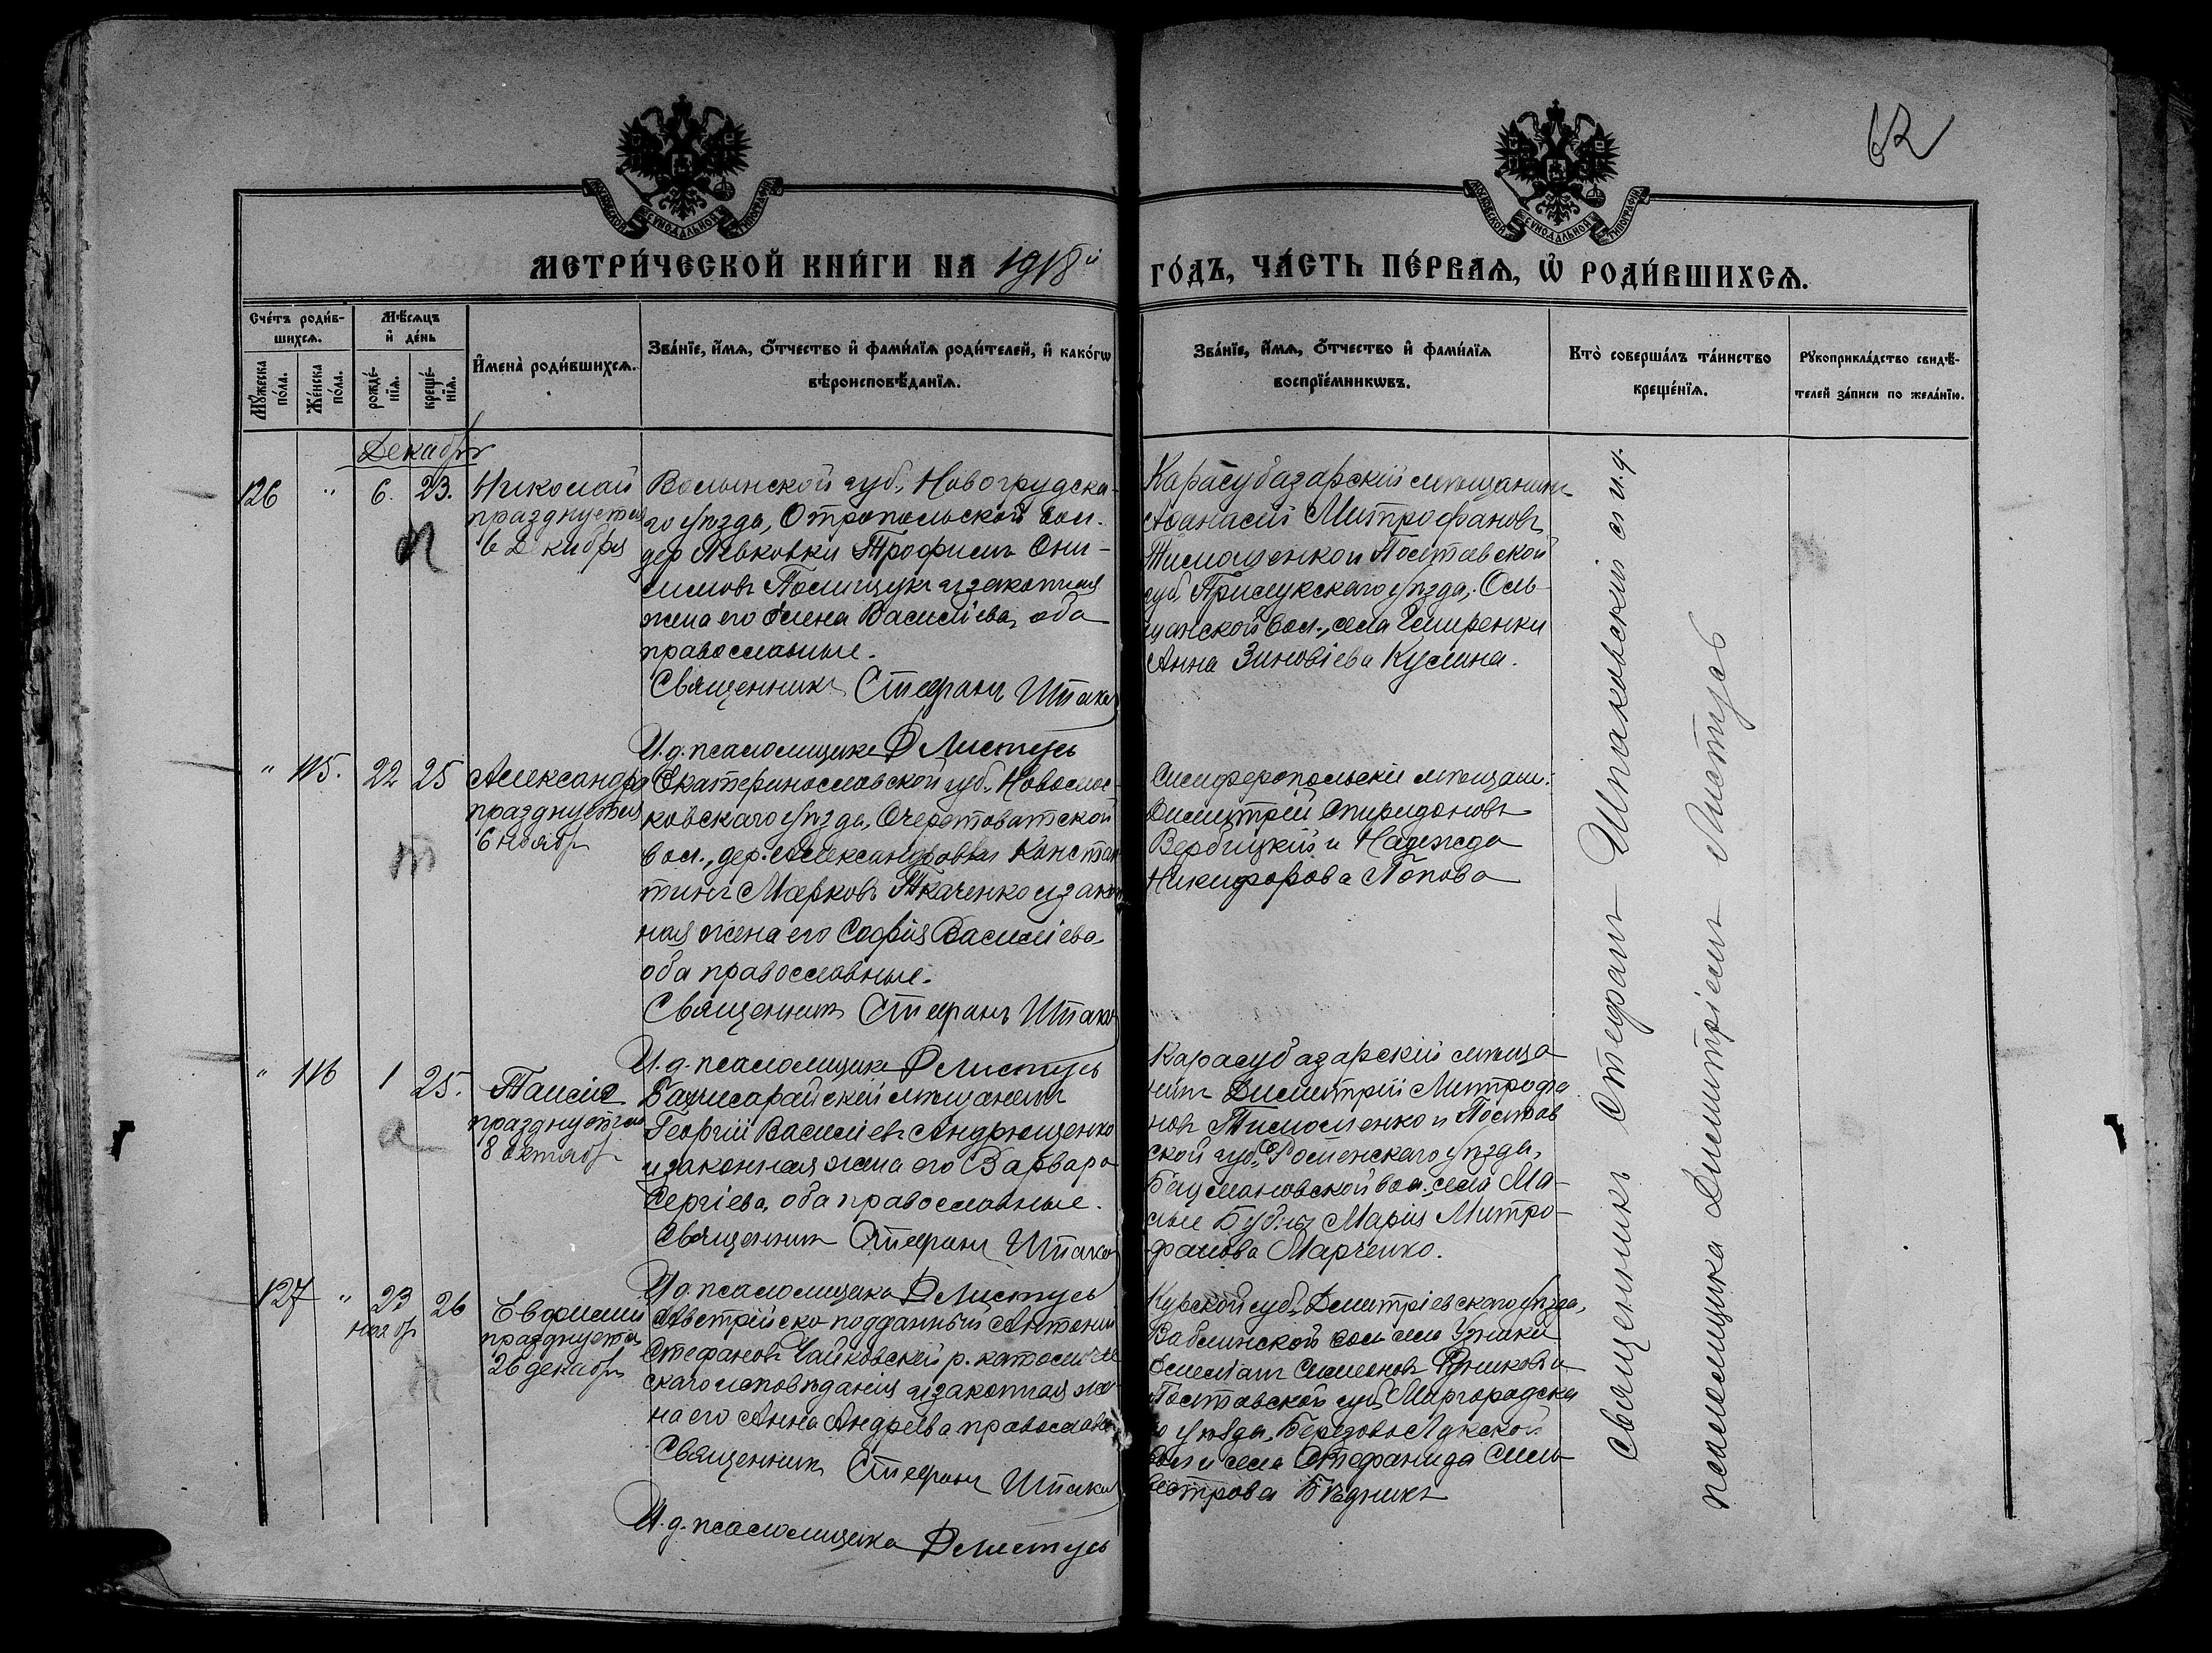 62
МЕТРИ́ЧЕСКОЙ КНИ́ГИ НА 1918й ГО́ДЪ, ЧА́СТЬ ПЕ́РВАѦ, Ѽ РОДИ́ВШИХСѦ.
Сче́тъ роди́вшихсѧ.
Мꙋ́жеска по́ла.
Же́нска по́ла.
Мѣ́сѧцъ и҆ де́нь
рожде́нїѧ.
креще́нїѧ.
И҆мена̀ роди́вшихсѧ.
Зва́нїе, и҆́мѧ, ѻ҆́тчество и҆ фами́лїѧ роди́телей, и҆ како́гѡ
вѣроисповѣ́данїѧ.
Зва́нїе, и҆́мѧ, ѻ҆́тчество и҆ фами́лїѧ
воспрїе́мникѡвъ.
Кто̀ соверша́лъ та́инство
креще́нїѧ.
Рꙋкоприкла́дство свидѣ́-
телей за́писи по жела́нїю.
Декабрь
126 " 6. 23.
Николай
празднуется
6 декабря
Волынской губ., Новогрудска-
го уѣзда, Отропольской вол.
дер Левковки Трофимъ Они-
симовъ Полищукъ и законная
жена его Елена Василіева, оба
православные.
Священникъ Стефанъ Шпако
И.д. псаломщика Д Листусь
Карасубазарскій мѣщанинъ
Афанасій Митрофановъ
Тимошенко и Полтавской
губ, Прилукскаго уѣзда, Оль-
шанской вол., села
Анна Зиновіева Кулина.
" 115. 22 25
Александра
празднуется
6 ноябр
Екатеринославской губ., Новомос-
ковскаго уѣзда, Очеретоватской
вол., дер. Александровки Констан
тинъ Марковъ Ткаченко и закон
ная жена его Софія Василіева
оба православные.
Священникъ Стефанъ Шпако
И.д. псаломщика Д Листусь
Симферопольскіе мѣщане:
Димитрій Спиридоновъ
Вербицкій и Надежда
Никифорова Попова
" 116 1 25.
Таисія
празднуется
8 октябр
Бахчисарайскій мѣщанинъ
Георгій Василіевъ Андрющенко
и законная жена его Варвара
Сергіева, оба православные.
Священникъ Стефанъ Шпако
И.д. псаломщика Д Листусь
Карасубазарскій мѣща
нинъ Димитрій Митрофа
новъ Тимошенко и Полтав
ской губ., Роменскаго уѣзда,
вол., села Ма-
лые Бубны Марія Митро-
фанова Марченко.
127 " 23 26
ноябр
Евфимій
празднуется
26 декабр
Австрійско-подданный Антоній
Стефановъ Чайковскій р. католиче
скаго исповѣданія и законная же
на его Анна Андреева православ
Священникъ Стефанъ Шпако
И.д. псаломщика Д Листусь
Курской губ., Дмитріевскаго уѣзда,
вол села
Симеоновъ и
Полтавской губ, Миргородска
го уѣзда, Березово Лукской
вол и села Стефанида Силь
вестрова Бѣдникъ
Священникъ Стефанъ Шпаковскій съ и.д.
псаломщика Димитріемъ Листусь